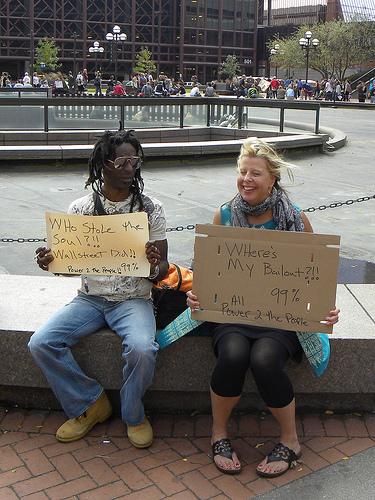 501
WHo Stole the
Soul?!!
Wallstreet Did!!
Power 2 the People!! 99%
WHere's
My Bailout?!!
99%
All
Power 2 the People